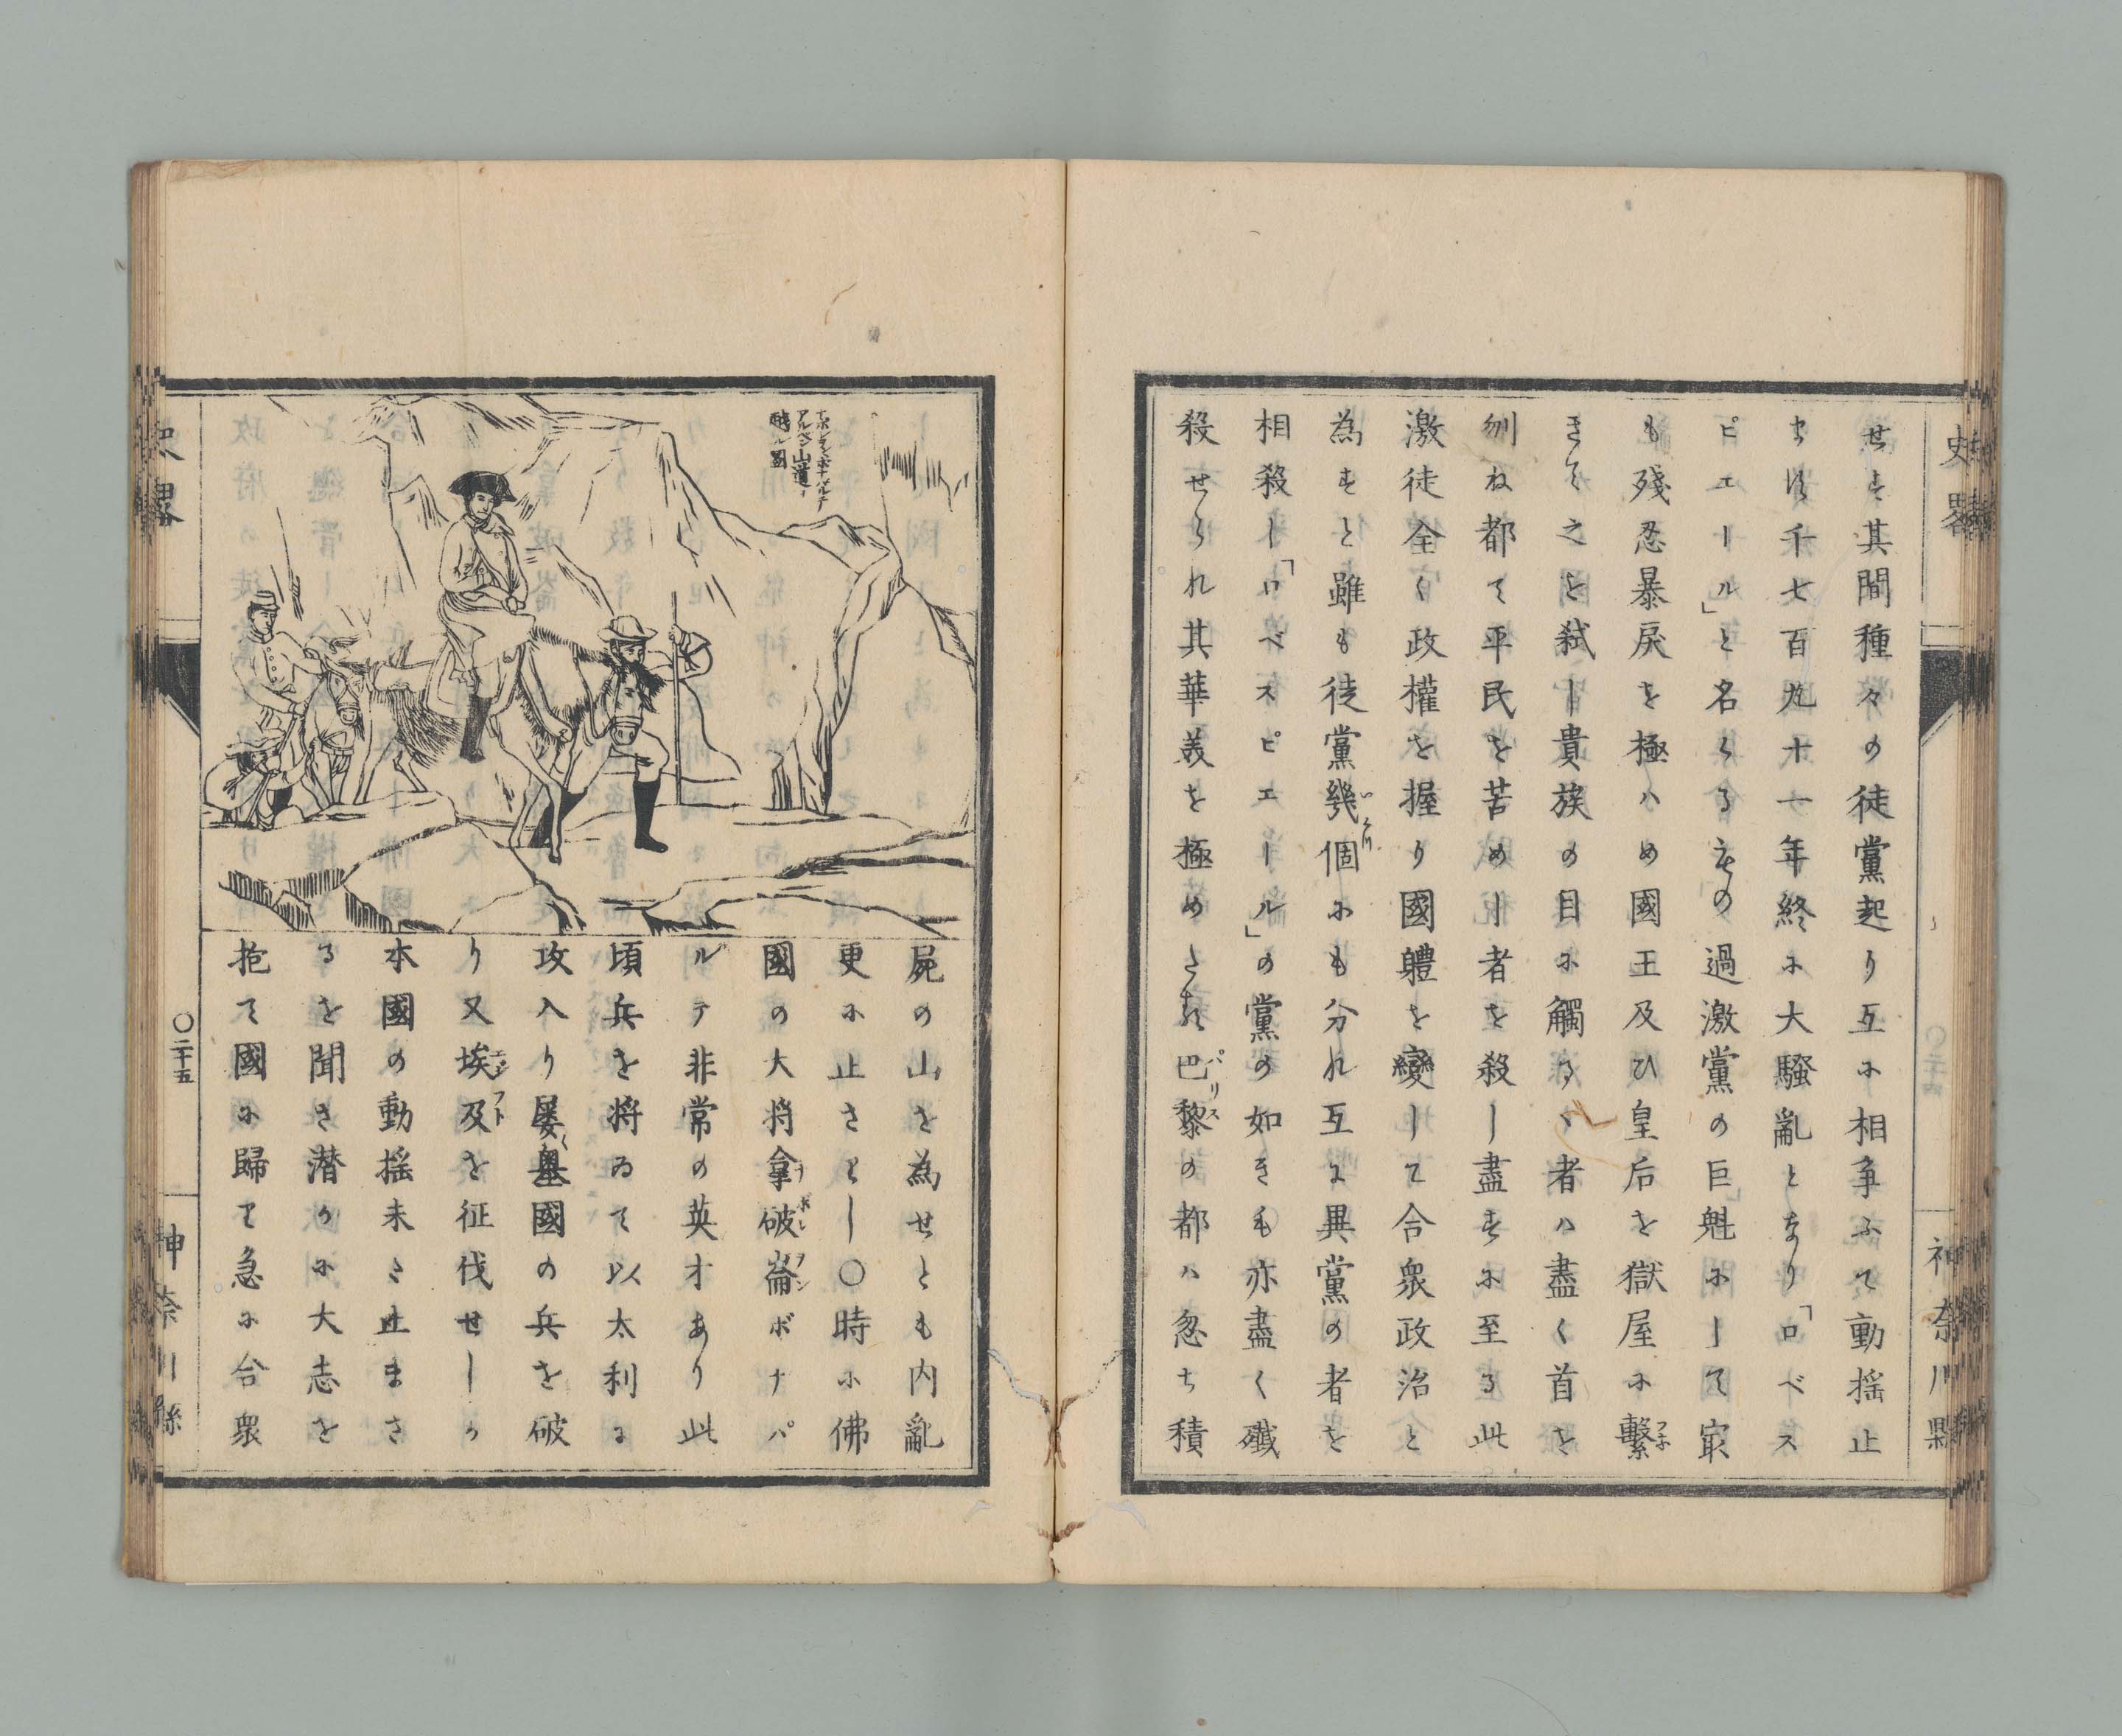 史畧
神奈川縣
せす其間種々の徒黨起り互に相爭ふて動揺止
ます千七百九十一年終に大騷亂となり「ロベス
ピエール」と名くるもの過激黨の巨魁にして㝡
も殘忍暴戾を極ハめ國王及ひ皇后を獄屋に繫
きて之を弑し貴族の目に觸るゝ者ハ盡く首を
刎ね都て平民を苦めし者を殺し盡すに至る此
激徒全く政權を握り國體を變して合衆政治と
為すと雖も徒黨幾個にも分れ互に異黨の者を
相殺し「ロベスピエール」の黨の如きも亦盡く殱
殺せられ其華美を極めたる巴黎の都ハ忽ち積
パリス
ナポレヲン、ボナパルテ
アルペン山道ノ
圖
屍の山を為せとも内亂
更に止さとし〇時に佛
國の大将拿破崙ボナパ
ナポレヲン
ルテ非常の英才あり此
頃兵を将ゐて以太利に
攻入り屡墺國の兵を破
り又埃及を征伐せしか
エジフト
本國の動揺未さ止まさ
るを聞き潜かに大志を
抱て國に歸て急に合衆
史畧
〇二十五
神奈川縣